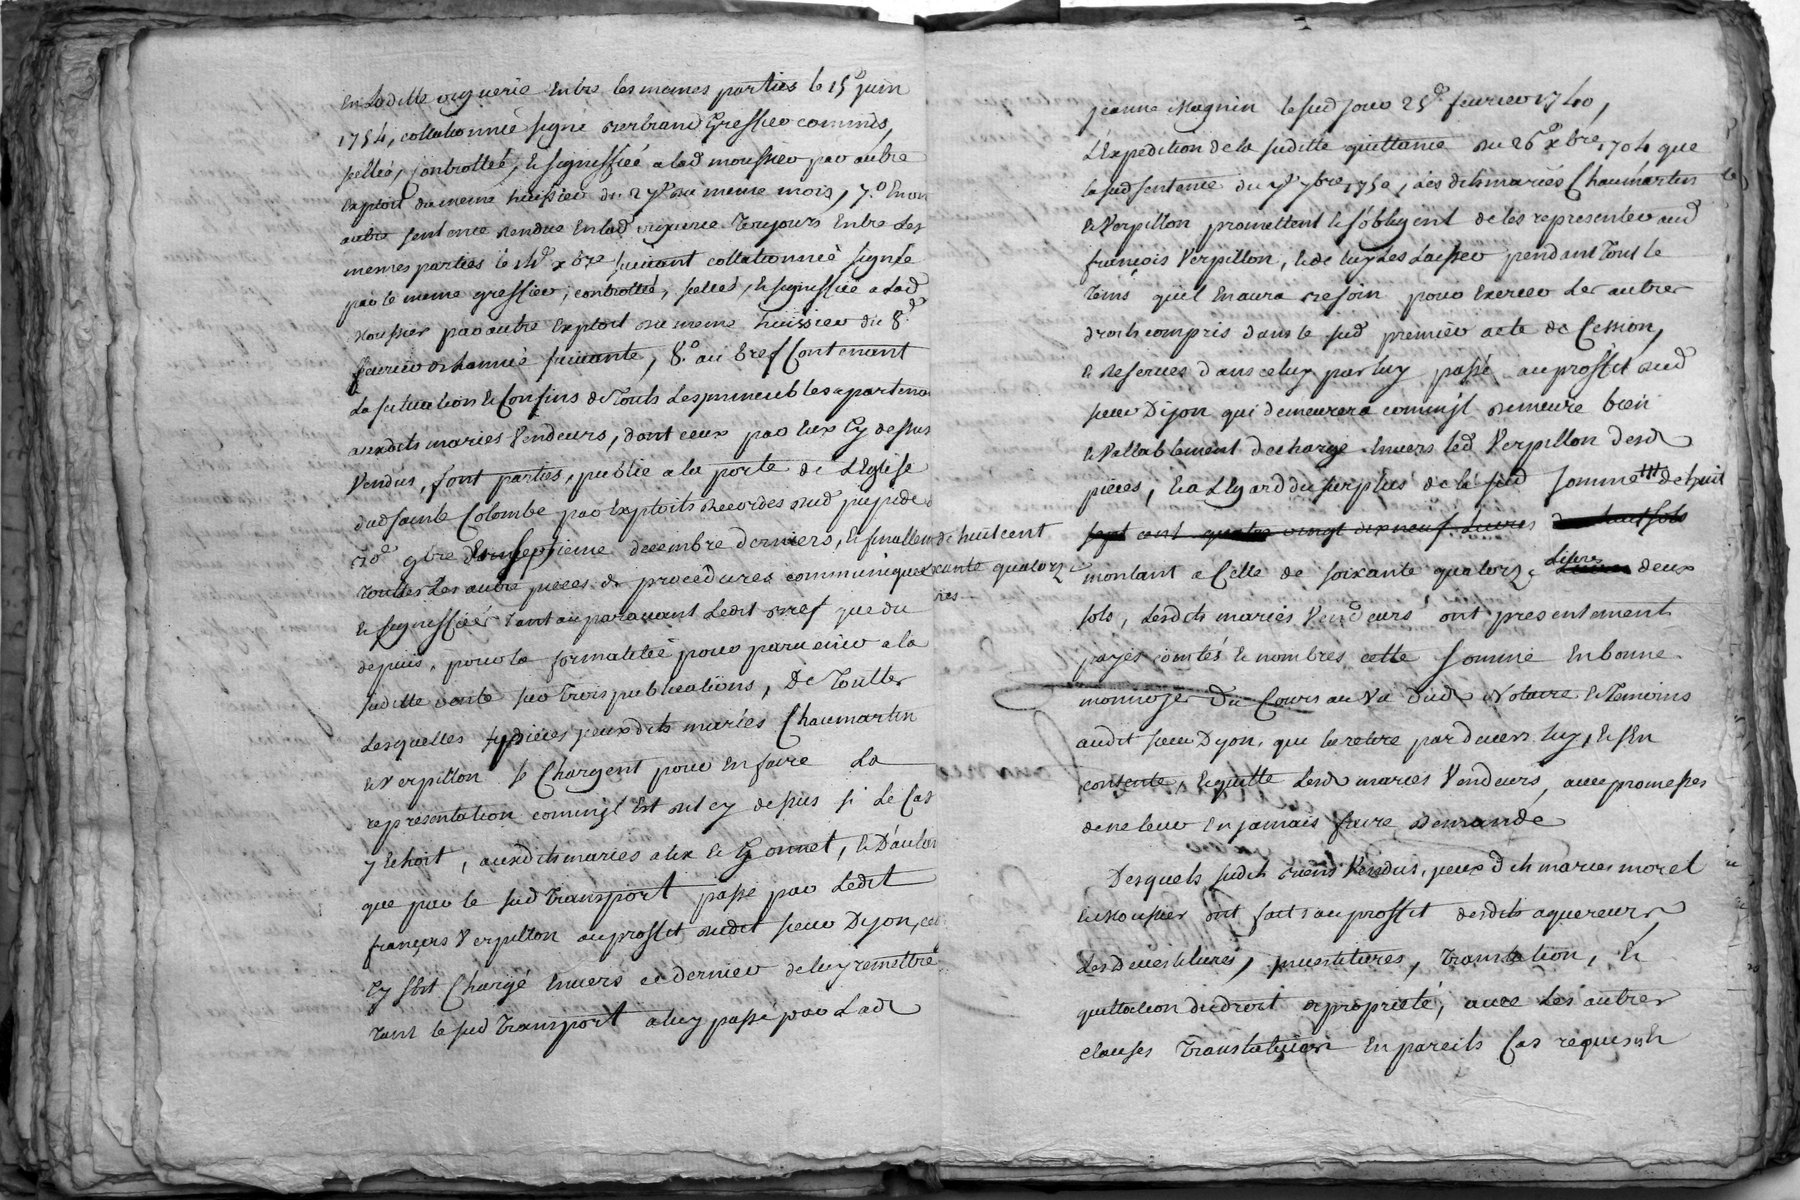 en laditte viguerie entre les memes parties le 15e juin
1754, collationnée signé Bertrand Greffier commis,
sellée, controllée, & signiffiée a lad moussier par autre
exploit du meme huissier du 27e du meme mois, 7.o Enon
autre sentence rendue en lad viguerie toujours Entre les
memes parties le 14e xbre suivant collationnée signée
par le meme greffier, controllée, sellée, & signiffiée a lad
Moussier par autre exploit du meme huissier du 8e
fevrier de l'année suivante, 8.o au bref Contenant
la situation & Confins de touts les immeubles apartenan
auxdits mariés Vendeurs, dont ceux par Eux Cy dessus
Vendus, font parties, publié a la porte de L'Eglise
dud sainte Colombe par Exploits recordés dud
30e 9bre septieme decembre derniers, & finallem
touttes les autres pieces de procedures communiquées
& signiffiées tant auparavant ledit bref que du
depuis, pour la formalité pour parvenir a la
suditte vente sur trois publications, De touttes
lesquelles pieces yceux dits mariés Chaumartin
& Verpillon se Chargent pour en faire La
representation comm'jl Est dit cy dessus si le Cas
y Echoit, auxdits mariés alix & Gonnet, & D'autan
que par le sud transport passé par Ledit
françois Verpillon au proffit dudit sieur Dijon, cel
Cy s'est Chargé Envers ce dernier de luy remettre
tant le sud transport a luy passé par Lad
jeanne Magnin le sud jour 25e fevrier 1740,
L'Expedition de la suditte quittance du 26e xbre 1704 que
la sud sentence du 7e 7bre 1750, Les dits mariés Chaumartin
& Verpillon promettent & s'obligent de les representer aud
françois Verpillon, & de luy les laisser pendant tout le
tems qu'il En aura besoin pour Exercer les autres
droits compris dans le sud premier acte de Cession,
& reservés dans celuy par luy passé au proffit dud
sieur Dijon qui demeurera comm'jl demeure bien
& vallablement dechargé Envers led Verpillon desd
pieces, & a L'Egard du surplus de la sud somme de huit
de huit cent
sept cent quatre vingt dix neuf Livres dix huit sols
montant a Celle de soixante quatorze Livres deux
soixante quatorze
sols, lesdits mariés Vendeurs ont presentement
payés comtés & nombrés cette somme En bonne
monnoye Du Cours au Vu dud Notaire & Temoins
audit sieur Dijon, qui la retire par devers luy, & s'En
contente, & quitte lesd mariés Vendeurs, avec promesses
de ne leur En jamais faire demande
Desquels sudits biens Vendus, yceux dits mariés morel
& Moussier ont fait au proffit desdits aquereurs
Les Devestitures, jnvestitures, translation, &
quittation du droit de proprieté, avec les autres
clauses translatives En pareils Cas requises &